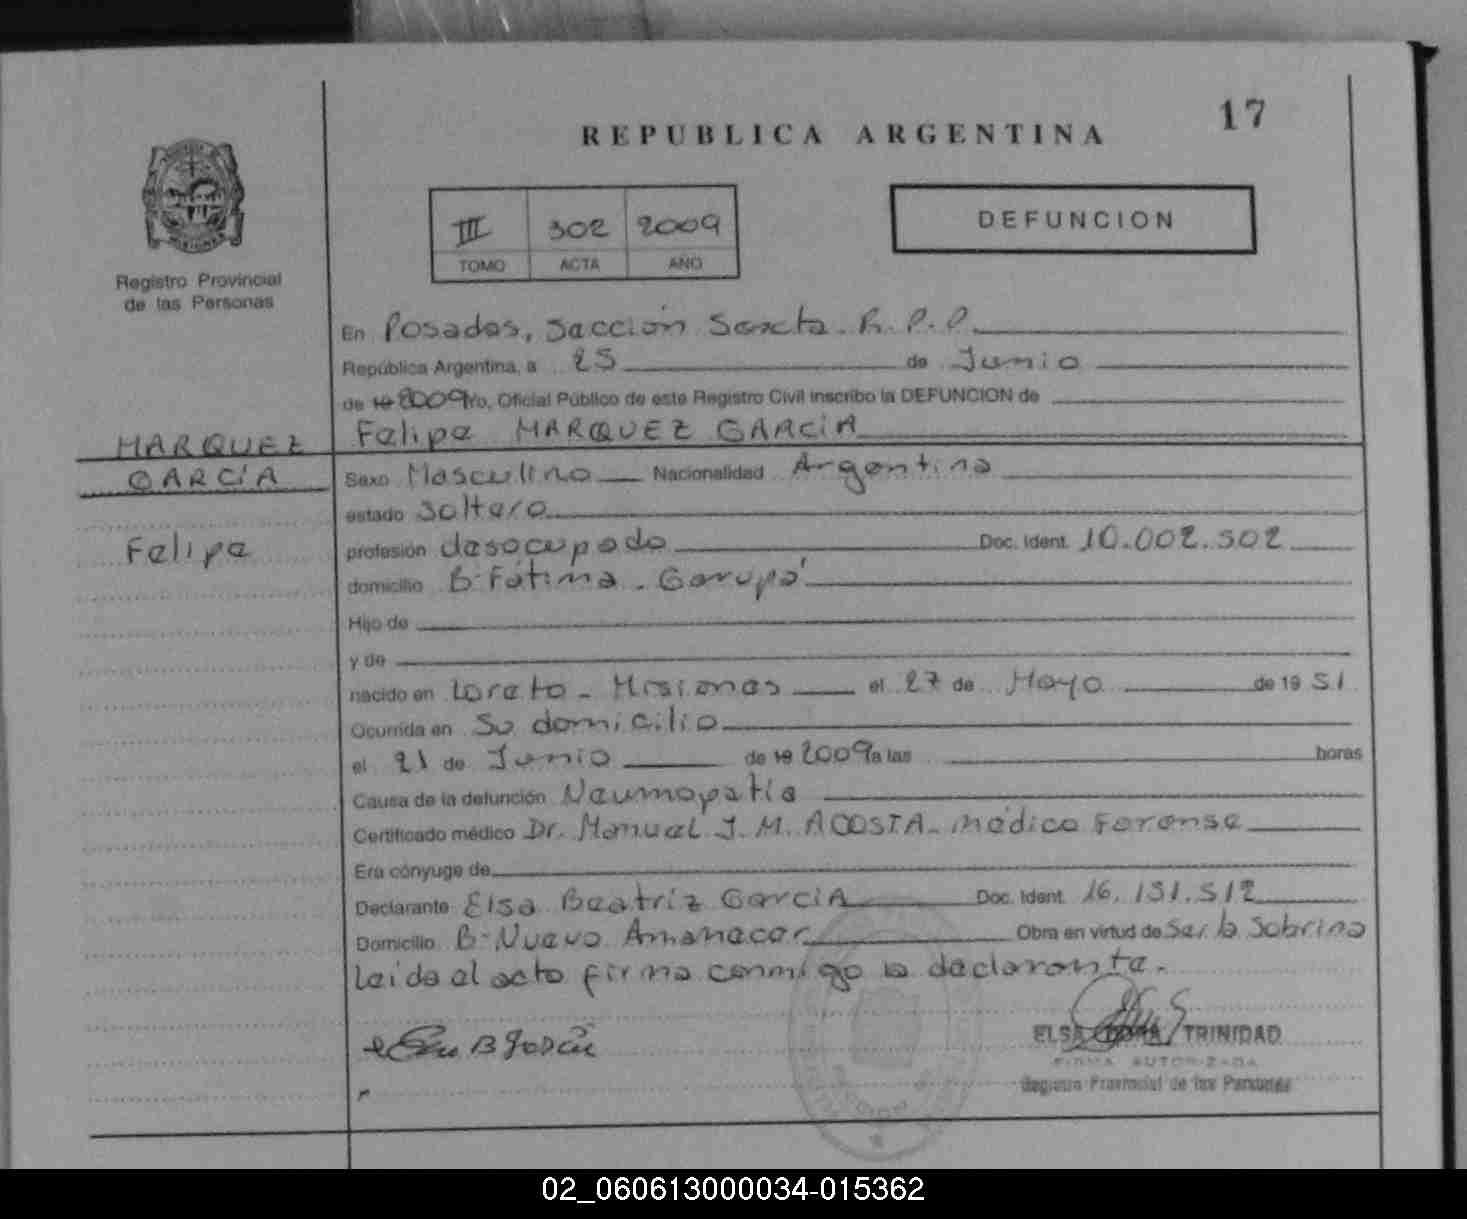 17
REPUBLICA ARGENTINA
III 302 2009
TOMO ACTA AÑO
DEFUNCION
Registro Provincial
de las Personas
En Posadas, Sección Sexta. R.P.P.
República Argentina, a 25 de Junio
de 19 2009 Yo, Oficial Público de este Registro Civil inscribo la DEFUNCION de
Felipe MARQUEZ GARCIA
MARQUEZ
GARCÍA
Felipe
Sexo Masculino Nacionalidad Argentina
estado soltero
profesión desocupado Doc. Ident. 10.002.502
domicilio B: Fátima - Garupá
Hijo de
y de
nacido en Loreto - Misiones el 27 de Mayo de 19 51
Ocurrida en Su domicilio
el 21 de Junio de 19 2009 a las horas
Causa de la defunción Neumopatía
Certificado médico Dr. Manuel J. M. ACOSTA - médico Forense
Era cónyuge de
Declarante Elsa Beatriz GarciA Doc. Ident. 16.131.512
Domicilio B: Nuevo Amanecer Obra en virtud de Ser la Sobrina
leída el acta firma conmigo la declarante.
ELSA TRINIDAD
FIRMA AUTORIZADA
Registro Provincial de las Personas
02_060613000034-015362